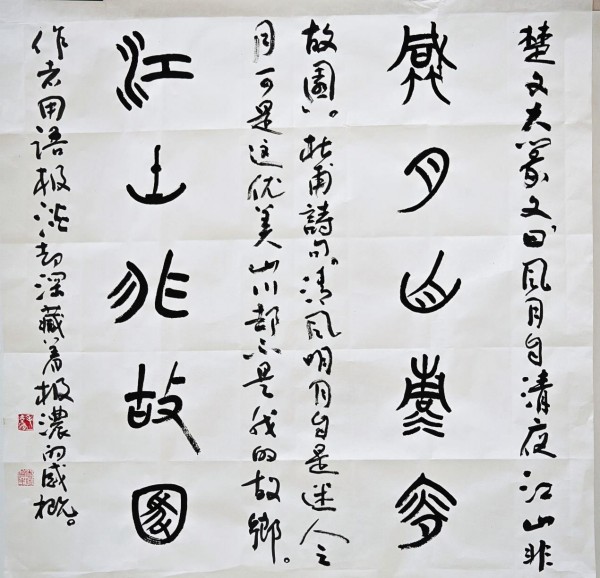 楚文大篆文曰"风月自清夜江山非
風月自清夜
故園"。杜甫詩句。清风明月自是迷人之
目可是这优美山川却不是我的故鄉。
江山非故園
作者用語极淡却深藏着极濃的感概。